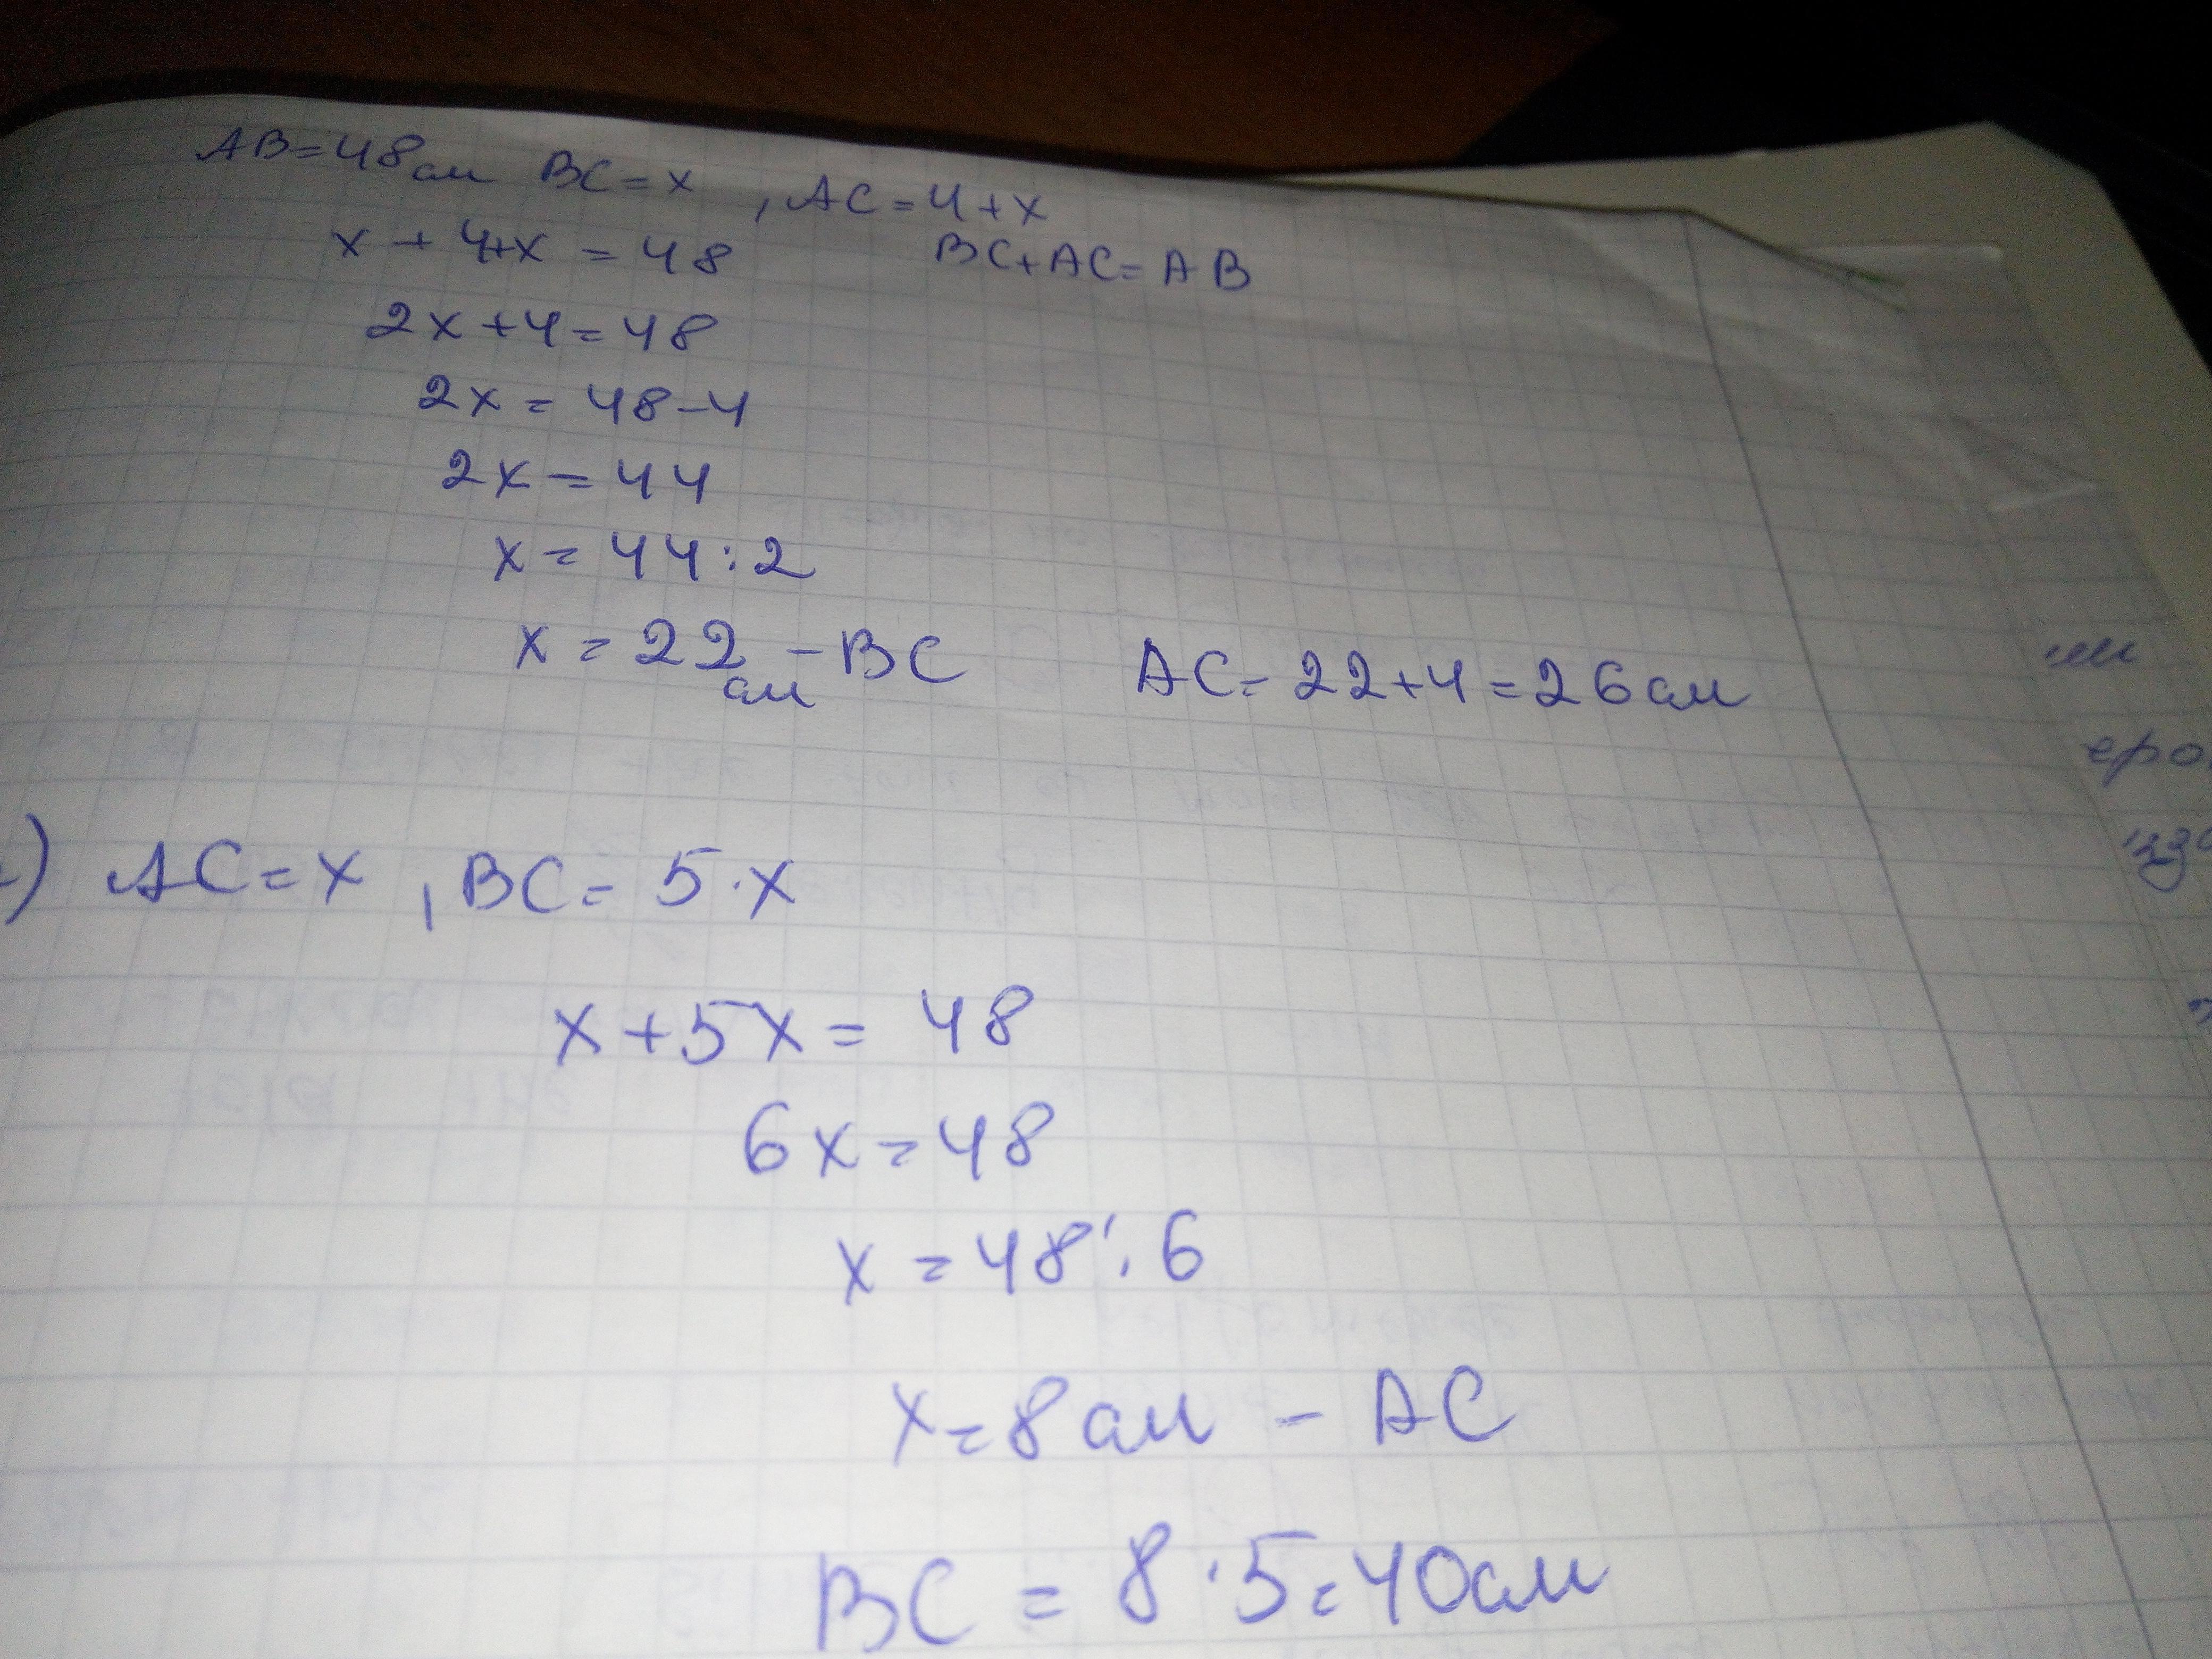 AB=48см BC=x, AC=4+x
x+4+x=48 BC+AC=AB
2x+4=48
2x=48-4
2x=44
x=44:2
x=22см-BC AC=22+4=26см
) AC=x, BC=5·x
x+5x=48
6x=48
x=48:6
x=8см - AC
BC=8·5=40см